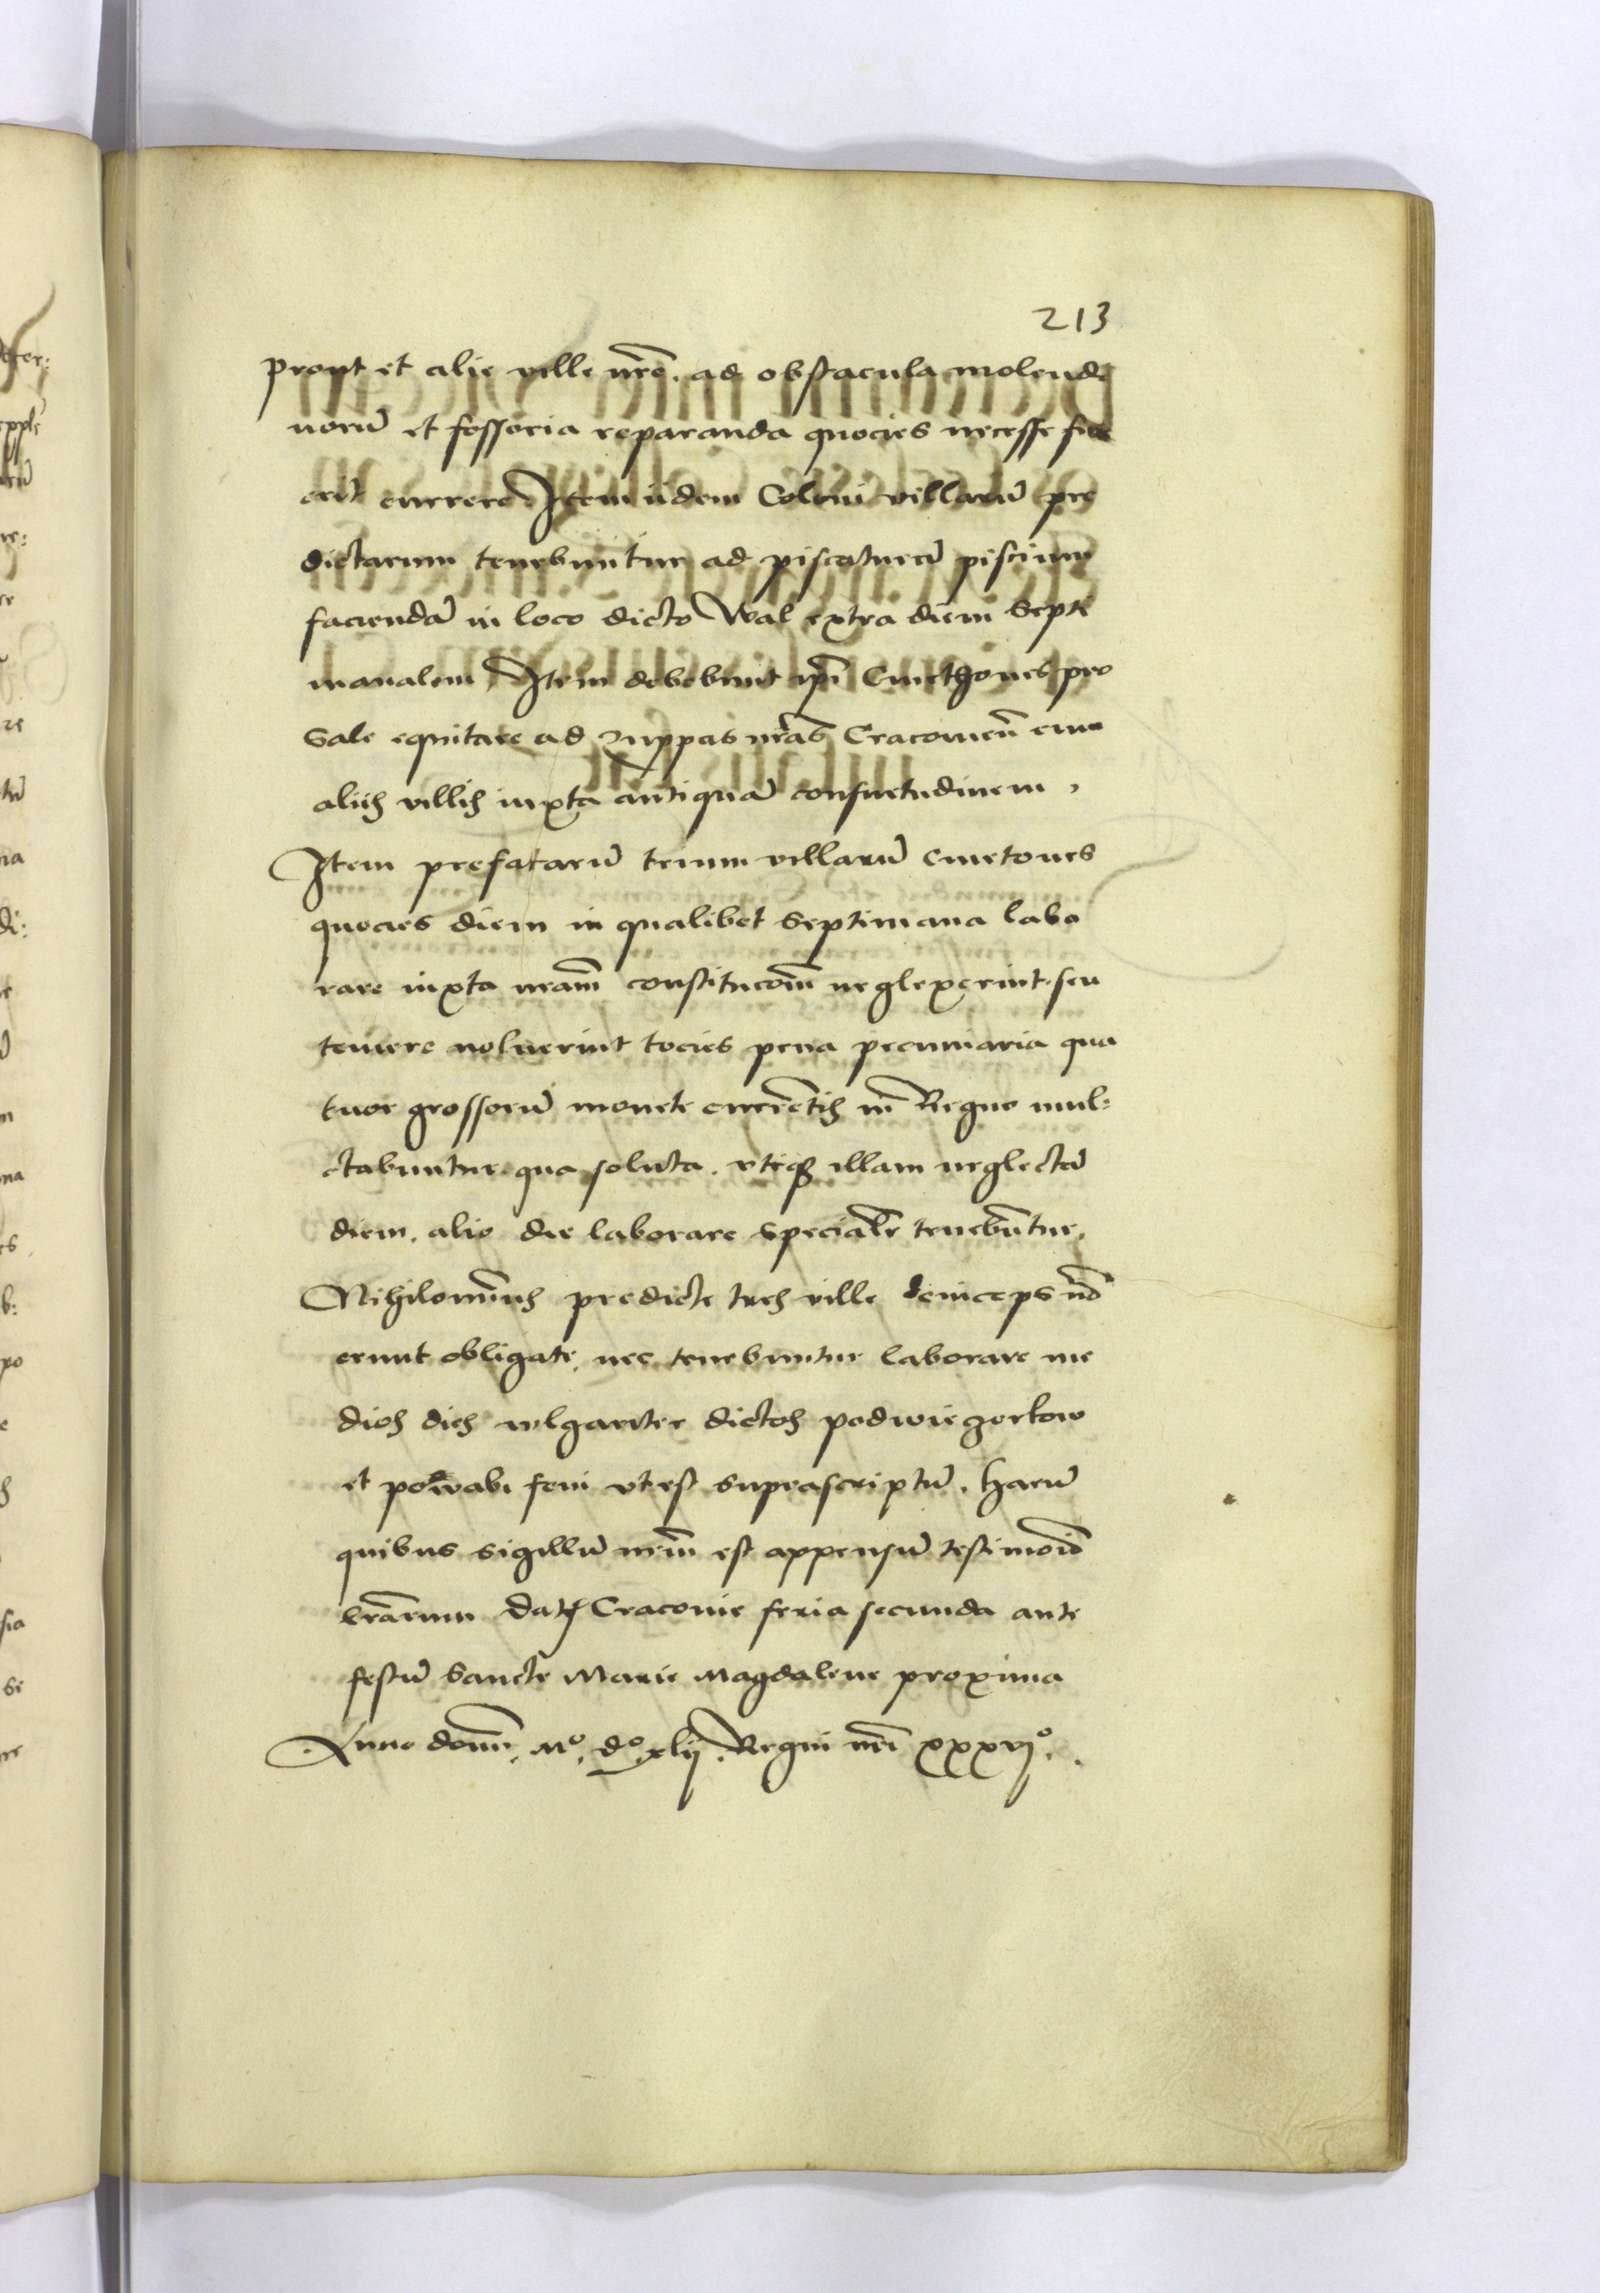 213
prout et alie ville nr̃e. ad obstacula molendi
norū et fossoria reparanda quocies necesse fue
erit currere Item iidem Coloni villarū pre
dictarum tenebuntur ad piscaturā piscium
faciendā in loco dicto Wal extra diem Septi
manalem, Item debebunt ip̃i Cmethones pro
Sale equitare ad zuppas nr̃as Cracouieñ cum
aliis villis iuxta antiquā consuetudinem,
Item prefatarū trium villarū cmetones
quocies diem in qualibet Septimana labo
rare iuxta nr̃am constitucõm neglexerint. seu
tenere noluerint tocies pena pecuniaria qua
tuor grossorū monete currẽtis in Regno mul:
ctabuntur. qua soluta. vtiqꝫ illam neglectā
diem. alio die laborare specialr̃ tenebũtur.
Nihilomĩus predicte tres ville deinceps nõ
erunt obligate, nec tenebuntur laborare me
dios dies wlgariter dictos podwieczorkow
et powabi feni vt est suprascriptū. harū
quibus sigillū nr̃m est appensū testimoĩo
lr̃arum Datꝫ Cracouie feria secunda ante
festū Sancte Marie Magdalene proxima
Anno domĩ. Mº. dº. xlij. Regni nr̃i xxxvjº.